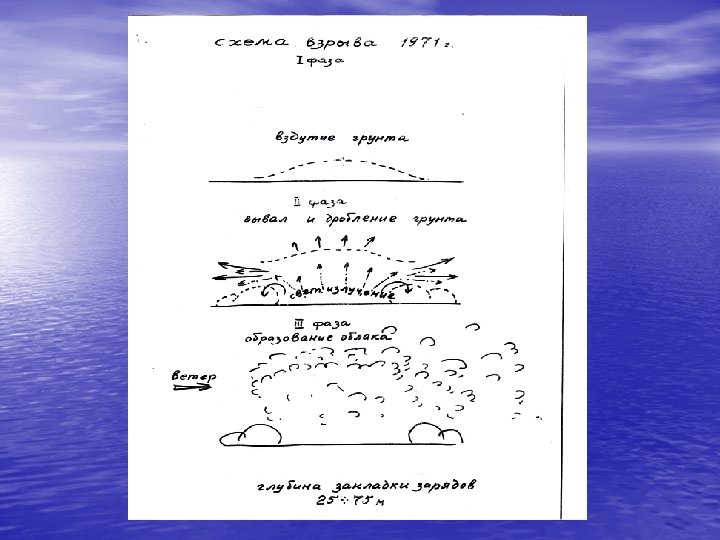 схема взрыва 1971 г.
I фаза
вздутие грунта
II фаза
вывал и дробление грунта
свет. излучение
III фаза
образование облака
ветер
глубина закладки зарядов
25÷75 м